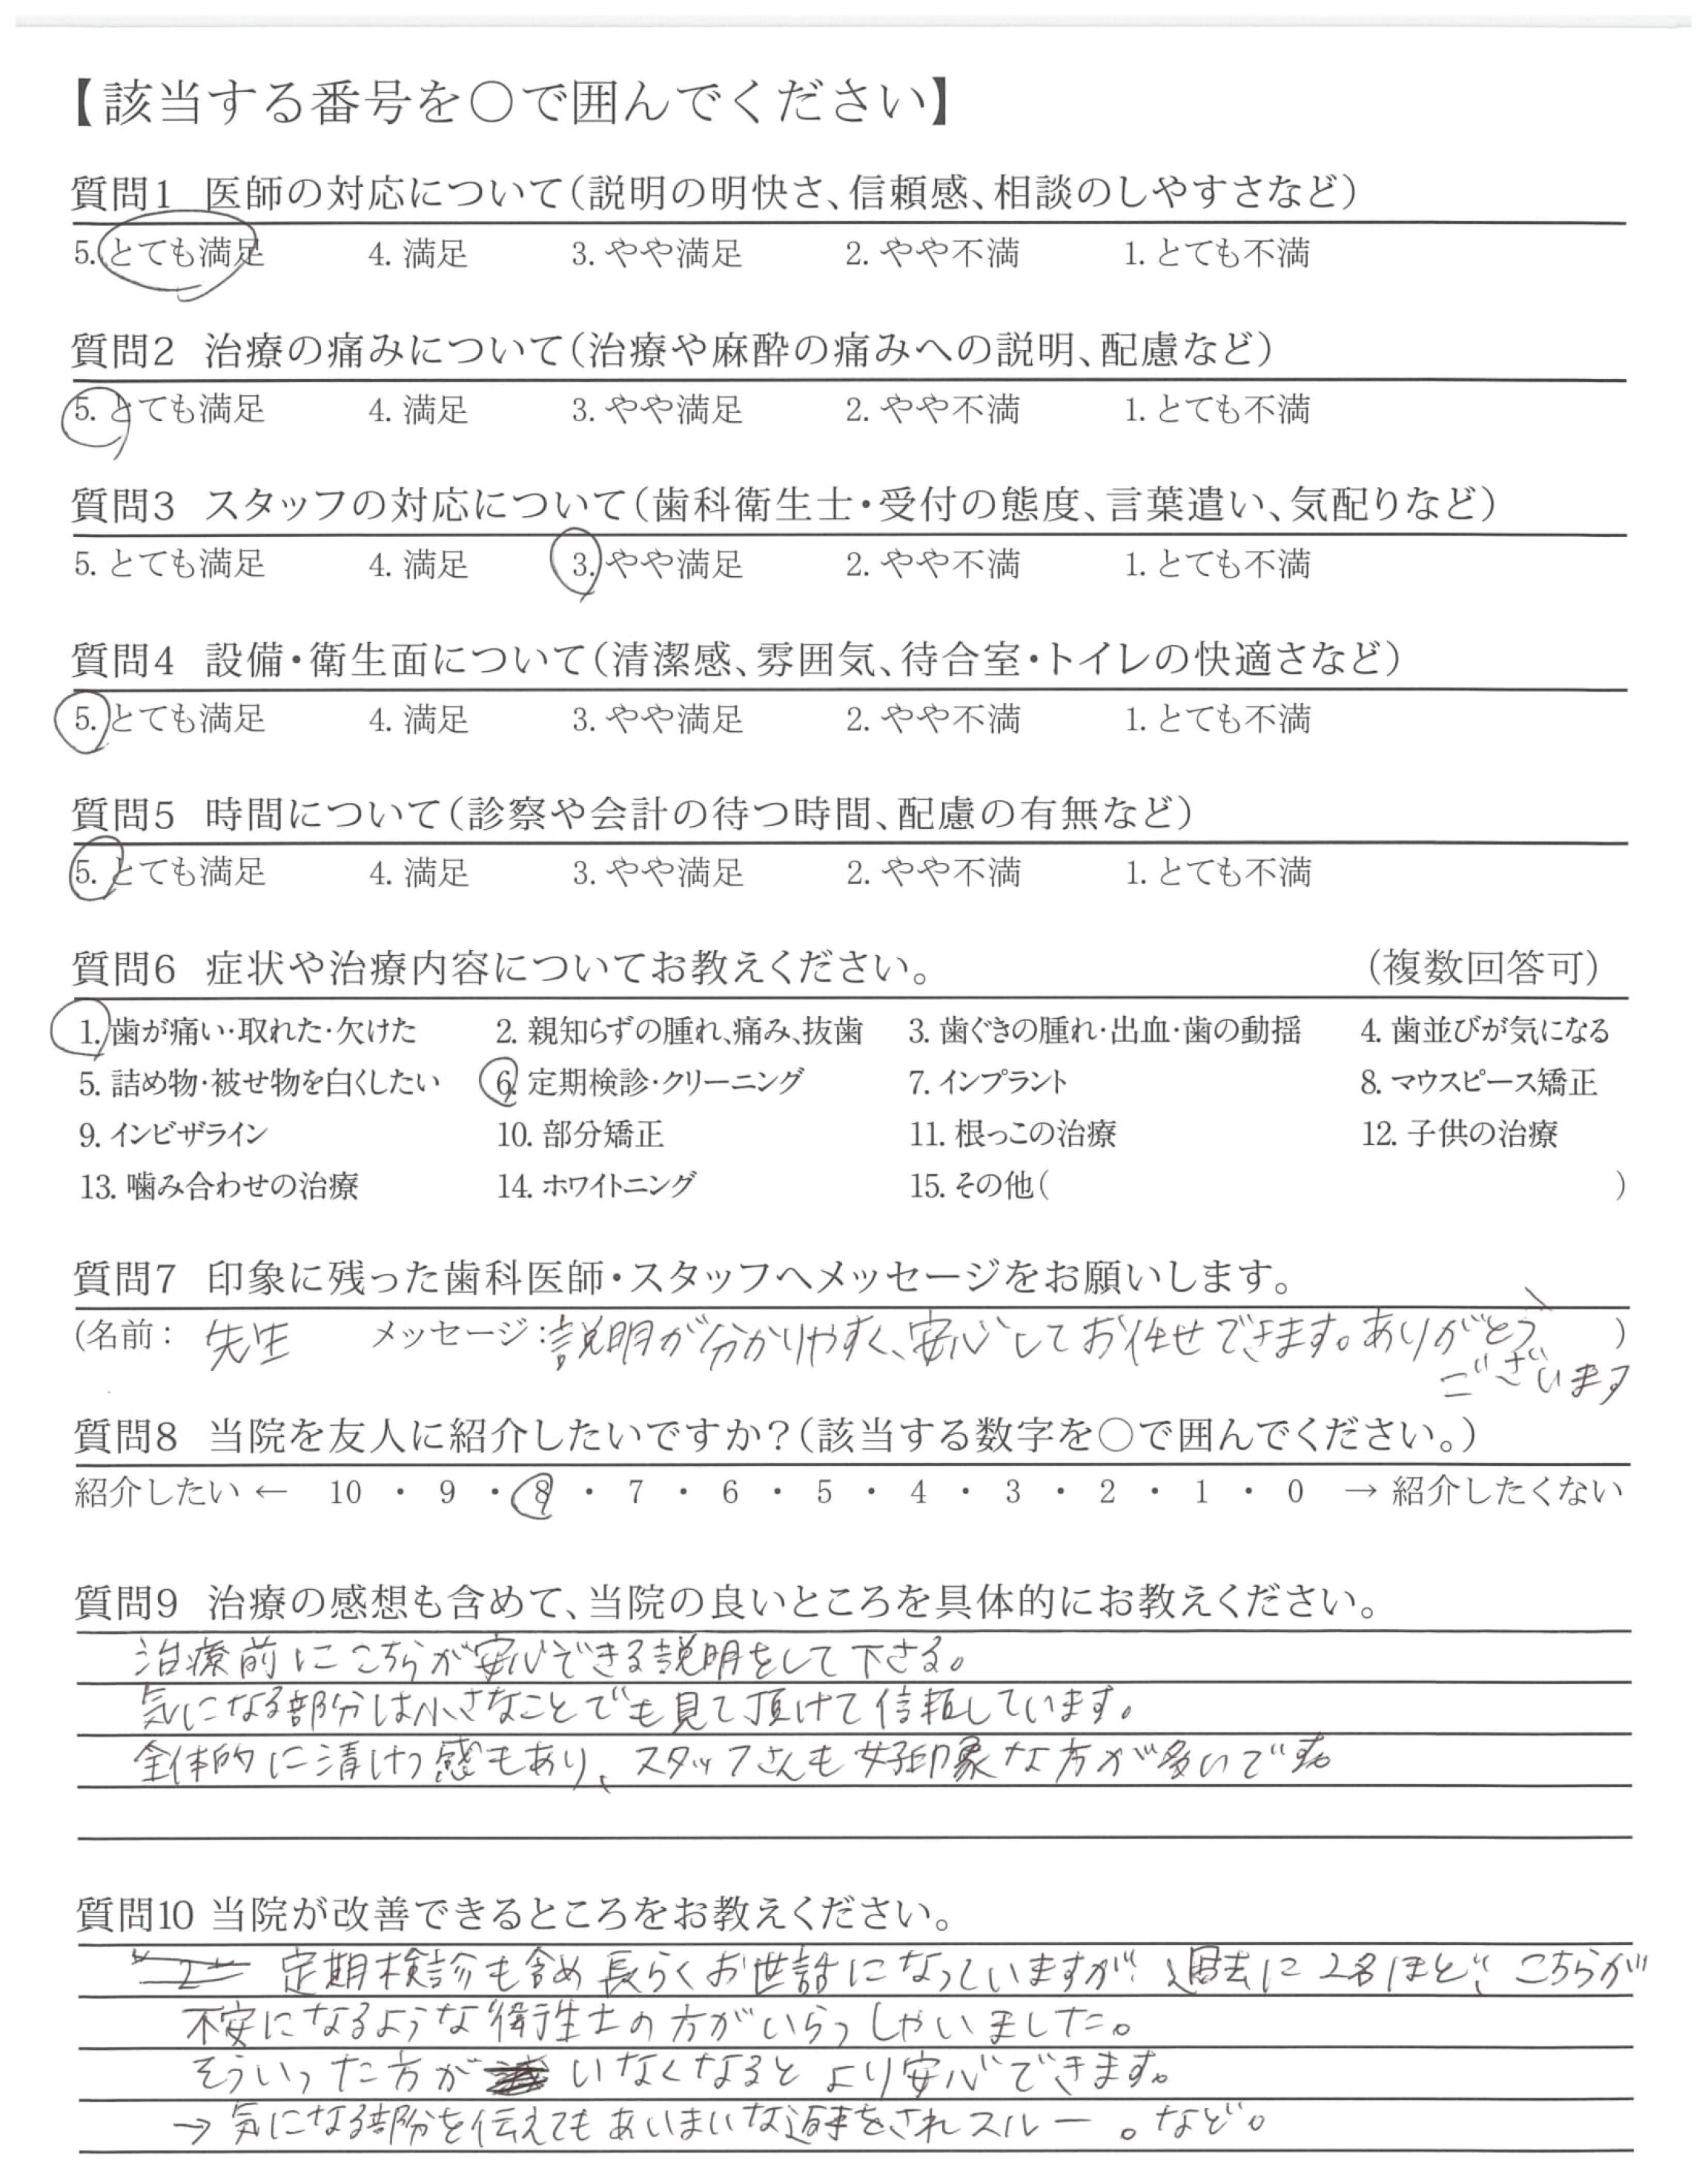 【該当する番号を○で囲んでください】
質問1 医師の対応について(説明の明快さ、信頼感、相談のしやすさなど)
5. とても満足 4. 満足 3. やや満足 2. やや不満 1. とても不満
質問2 治療の痛みについて(治療や麻酔の痛みへの説明、配慮など)
5. とても満足 4. 満足 3. やや満足 2. やや不満 1. とても不満
質問3 スタッフの対応について(歯科衛生士・受付の態度、言葉遣い、気配りなど)
5. とても満足 4. 満足 3. やや満足 2. やや不満 1. とても不満
質問4 設備・衛生面について(清潔感、雰囲気、待合室・トイレの快適さなど)
5. とても満足 4. 満足 3. やや満足 2. やや不満 1. とても不満
質問5 時間について(診察や会計の待つ時間、配慮の有無など)
5. とても満足 4. 満足 3. やや満足 2. やや不満 1. とても不満
質問6 症状や治療内容についてお教えください。 (複数回答可)
1. 歯が痛い・取れた・欠けた 2. 親知らずの腫れ、痛み、抜歯 3. 歯ぐきの腫れ・出血・歯の動揺 4. 歯並びが気になる
5. 詰め物・被せ物を白くしたい 6. 定期検診・クリーニング 7. インプラント 8. マウスピース矯正
9. インビザライン 10. 部分矯正 11. 根っこの治療 12. 子供の治療
13. 噛み合わせの治療 14. ホワイトニング 15. その他( )
質問7 印象に残った歯科医師・スタッフへメッセージをお願いします。
(名前: 先生 メッセージ:説明が分かりやすく、安心してお任せできます。ありがとう )
ございます
質問8 当院を友人に紹介したいですか?(該当する数字を○で囲んでください。)
紹介したい ← 10 ・ 9 ・ 8 ・ 7 ・ 6 ・ 5 ・ 4 ・ 3 ・ 2 ・ 1 ・ 0 → 紹介したくない
質問9 治療の感想も含めて、当院の良いところを具体的にお教えください。
治療前にこちらが安心できる説明をして下さる。
気になる部分は小さなことでも見て頂けて信頼しています。
全体的に清けつ感もあり、スタッフさんも好印象な方が多いです。
質問10 当院が改善できるところをお教えください。
定期検診も含め長らくお世話になっていますが、過去に2名ほど、こちらが
不安になるような衛生士の方がいらっしゃいました。
そういった方がいなくなるとより安心できます。
→気になる部分を伝えてもあいまいな返事をされスルー。など。